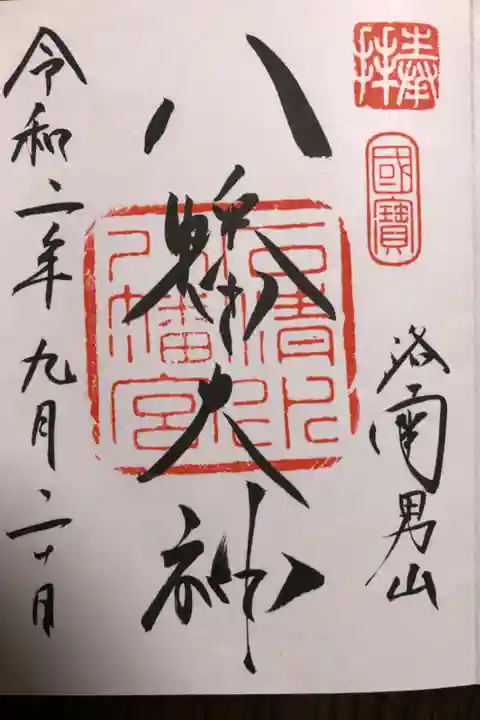 奉拝
國寶
洛南男山
八幡大神
石清水八幡宮
令和二年九月二十日